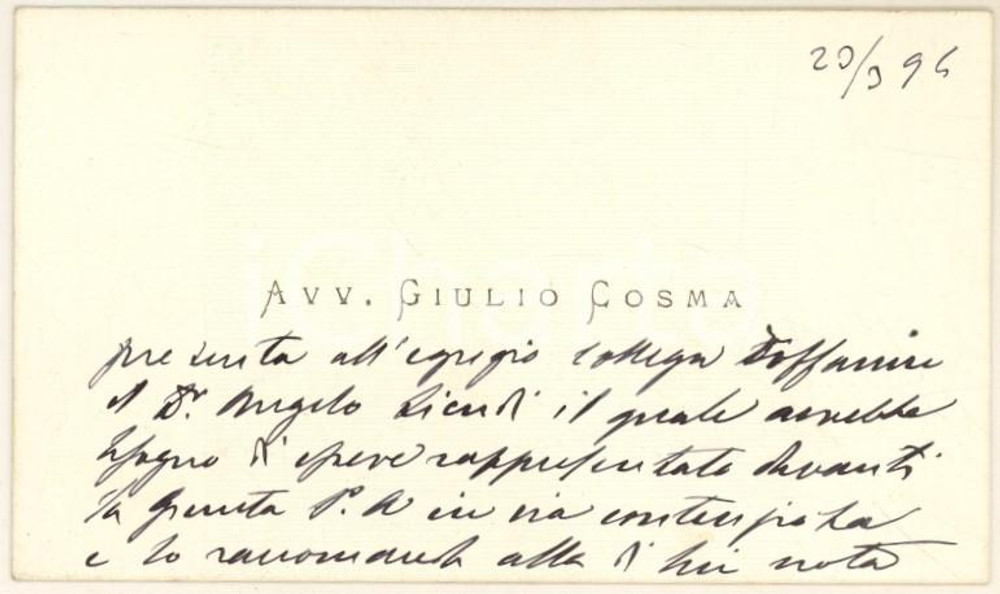 23/3 96
AVV. GIULIO COSMA
presenta all'egregio collega Toffanin
il Dr. Angelo il quale avrebbe
bisogno di essere rappresentato davanti
la Giunta P. A in via contenziosa
e lo raccomanda alla di lui nota